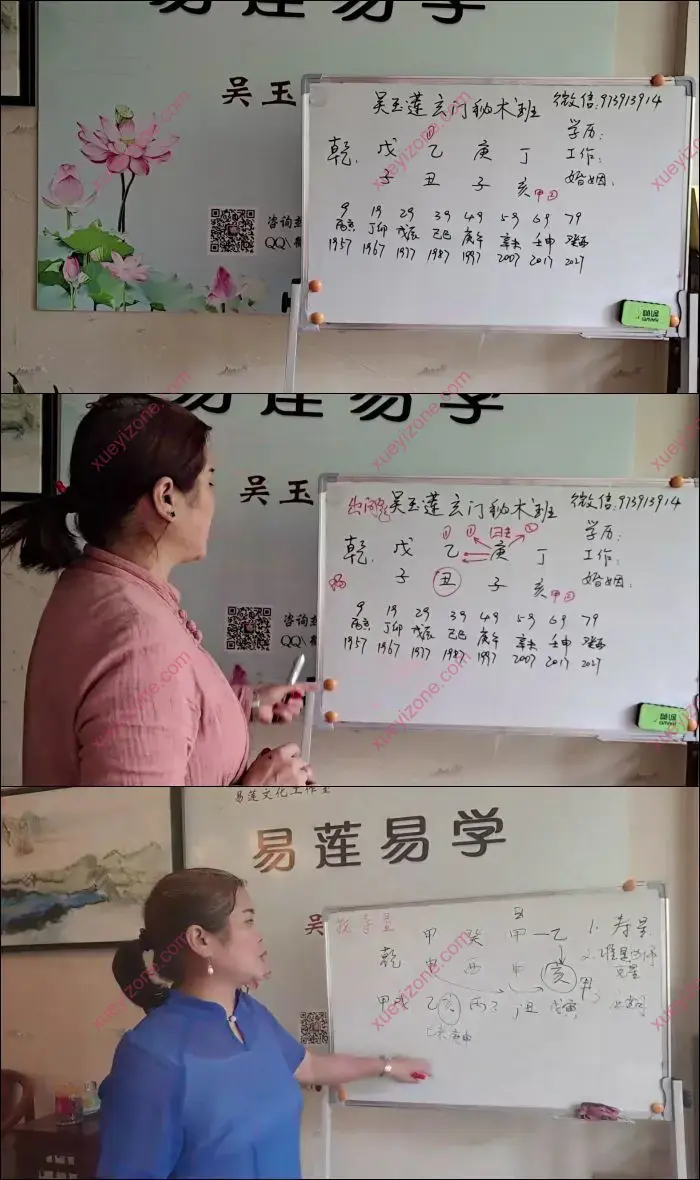 易莲易学
吴玉
吴玉莲玄门秘术班 微信:973913914
学历:
工作:
婚姻:
乾. 戊 乙 庚 丁
子 丑 子 亥 甲
9 19 29 39 49 59 69 79
丙寅 丁卯 戊辰 己巳 庚午 辛未 壬申 癸酉
1957 1967 1977 1987 1997 2007 2017 2027
咨询
QQ\
xueyizone.com
易莲易学
吴玉
吴玉莲玄门秘术班 微信:973913914
学历:
工作:
婚姻:
日主
乾. 戊 乙 庚 丁
子 丑 子 亥 甲
9 19 29 39 49 59 69 79
丙寅 丁卯 戊辰 己巳 庚午 辛未 壬申 癸酉
1957 1967 1977 1987 1997 2007 2017 2027
咨询
QQ\
xueyizone.com
易莲文化工作室
易莲易学
吴
甲 癸 甲 乙 1. 寿星
乾 酉 申 亥 2.
克星
甲戌 乙亥 丙子 丁丑 戊寅
xueyizone.com